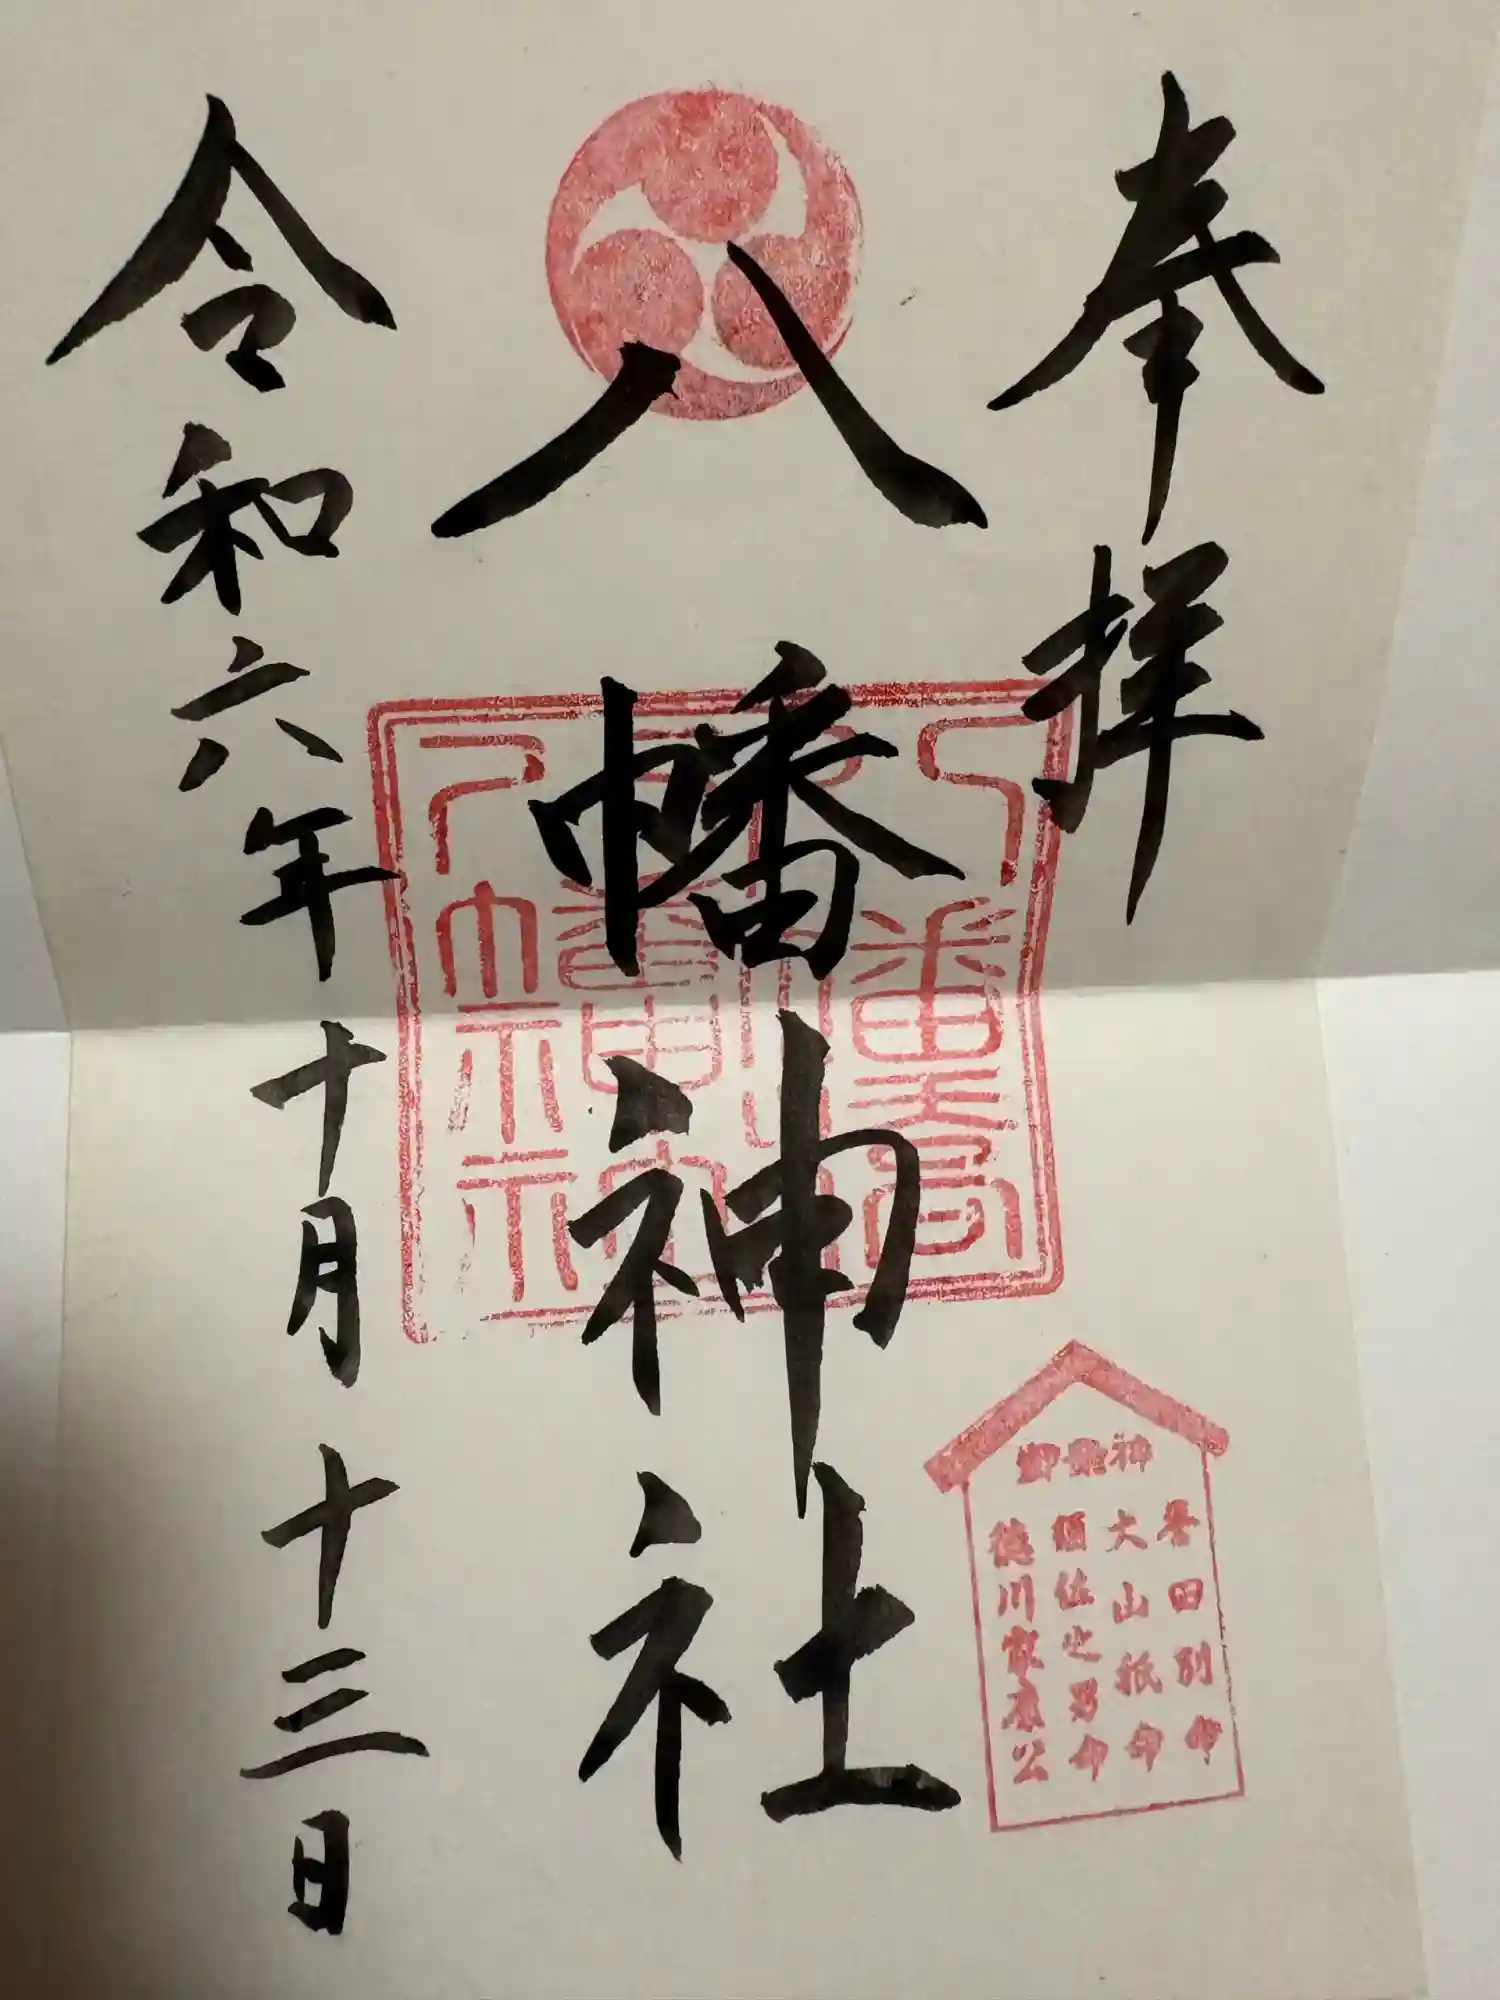 奉拝
八幡神社
令和六年十月十三日
御祭神
誉田別命
大山祇命
須佐之男命
徳川家康公